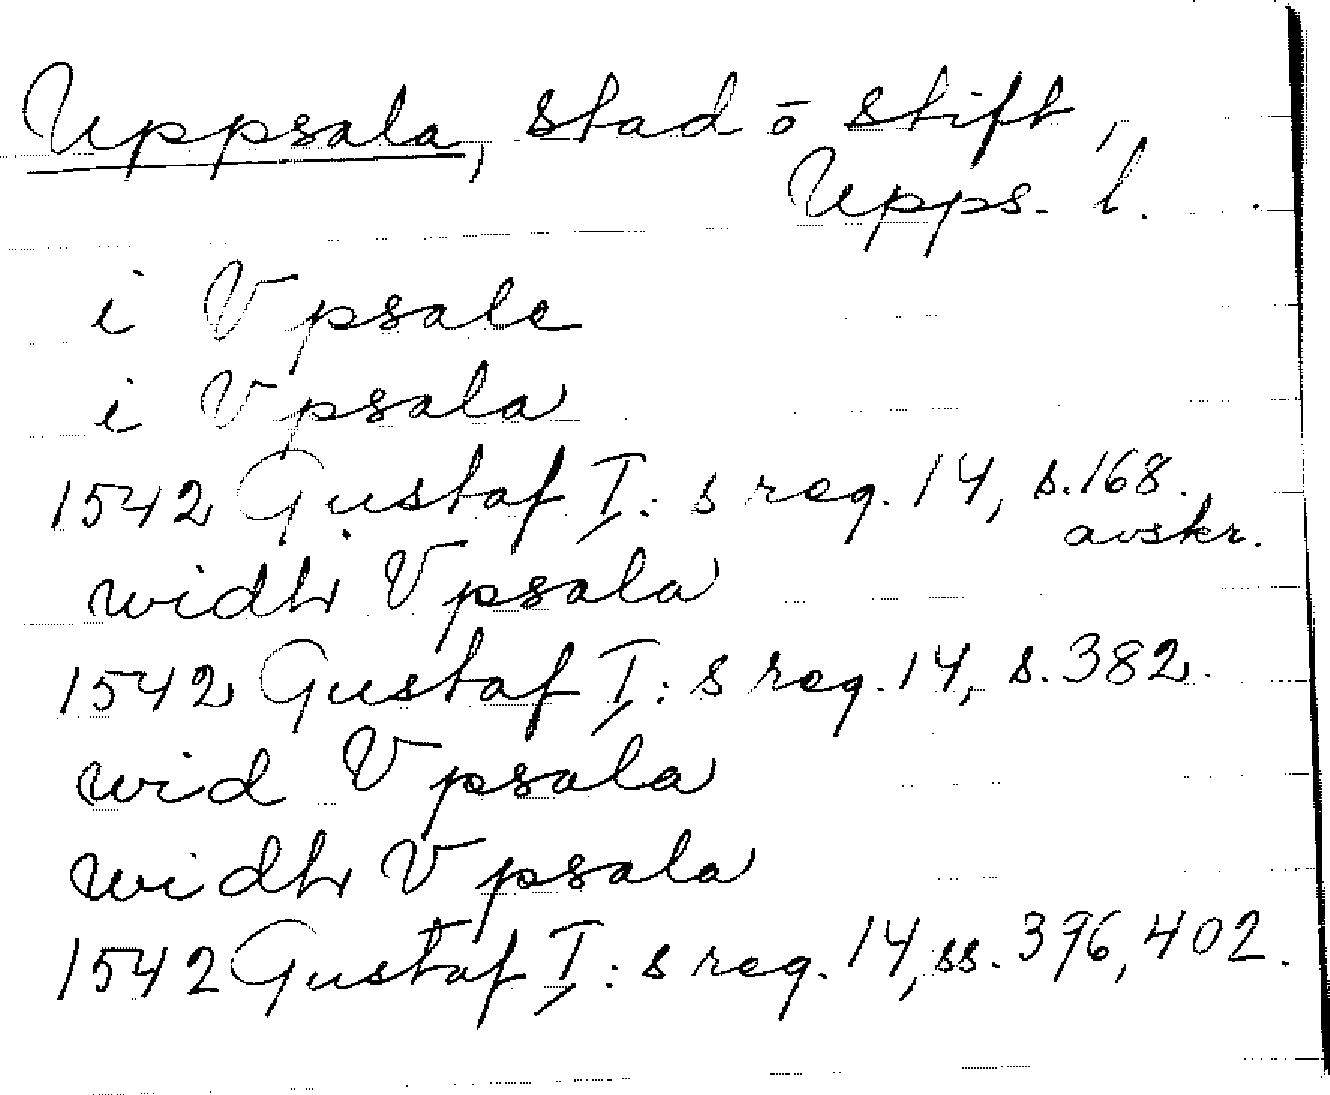 Uppsala, stad o stift,
Upps. l.
i Vpsale
i Vpsala
1542 Gustaf I:s reg. 14, s. 168.
avskr.
widh Vpsala
1542 Gustaf I:s reg. 14, s. 382.
wid Vpsala
widh Vpsala
1542 Gustaf I:s reg. 14, ss. 396, 402.